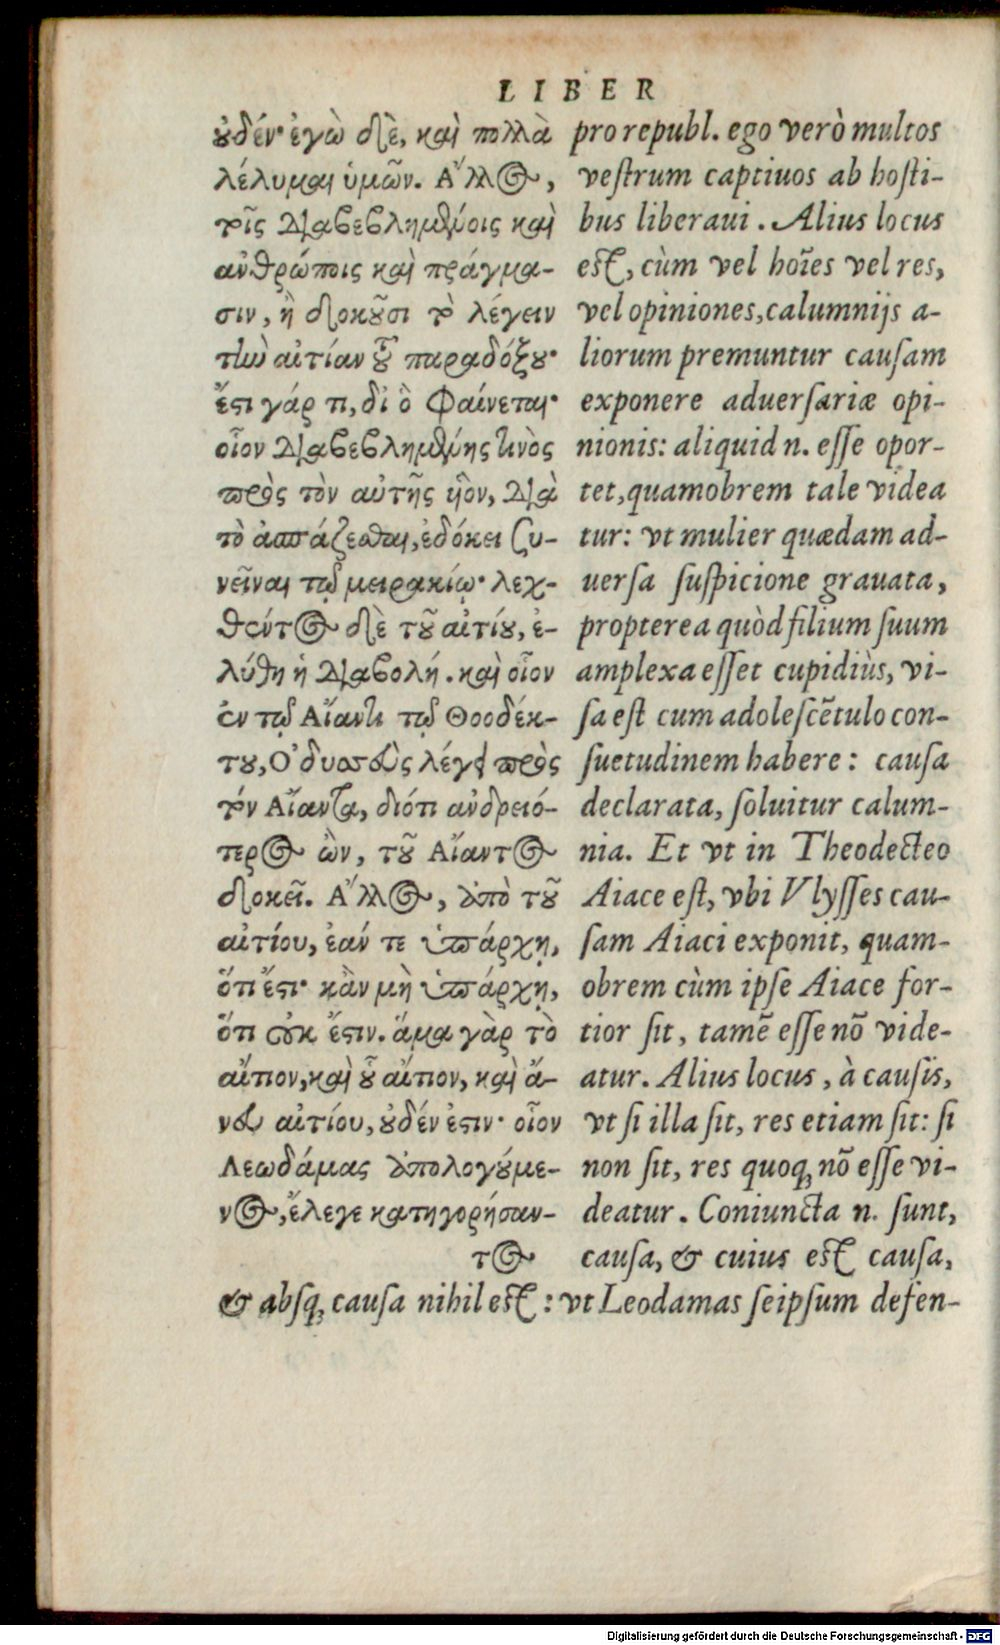 LIBER
οὐδέν· ἐγὼ δὲ, καὶ πολλὰ
λέλυμαι ὑμῶν. Ἄλλος,
τοῖς διαβεβλημένοις καὶ
ἀνθρώποις καὶ πράγμα-
σιν, ἢ δοκοῦσι τὸ λέγειν
τὴν αἰτίαν τοῦ παραδόξου·
ἔστι γάρ τι, δι ὃ φαίνεται·
οἷον διαβεβλημένης τινὸς
πρὸς τὸν αὐτῆς ἡὸν, διὰ
τὸ ἀσπάζεσθαι, ἐδόκει συ-
νεῖναι τῷ μειρακίῳ· λεχ-
θέντος δὲ τοῦ αἰτίου, ἐ-
λύθη ἡ διαβολή. καὶ οἷον
ἐν τῷ Αἴαντι τῷ Θοοδέκ-
του, Ὀδυσσεὺς λέγει πρὸς
τὸν Αἴαντα, διότι ἀνδρειό-
τερος ὢν, τοῦ Αἴαντος
δοκεῖ. Ἄλλος, ἀπὸ τοῦ
αἰτίου, ἐάν τε ὑπάρχῃ,
ὅτι ἔστι· κἂν μὴ ὑπάρχῃ,
ὅτι οὐκ ἔστιν. ἅμα γὰρ τὸ
αἴτιον, καὶ οὗ αἴτιον, καὶ ἄ-
νευ αἰτίου, οὐδέν ἐστιν· οἷον
Λεωδάμας ἀπολογούμε-
νος, ἔλεγε κατηγορήσαν-
τος
pro republ. ego verò multos
vestrum captiuos ab hosti-
bus liberaui. Alius locus
est, cùm vel hoīes vel res,
vel opiniones, calumnijs a-
liorum premuntur causam
exponere aduersariæ opi-
nionis: aliquid n. esse opor-
tet, quamobrem tale videa
tur: vt mulier quædam ad-
uersa suspicione grauata,
propterea quòd filium suum
amplexa esset cupidiùs, vi-
sa est cum adolescētulo con-
suetudinem habere: causa
declarata, soluitur calum-
nia. Et vt in Theodecteo
Aiace est, vbi Vlysses cau-
sam Aiaci exponit, quam-
obrem cùm ipse Aiace for-
tior sit, tamē esse nō vide-
atur. Alius locus, à causis,
vt si illa sit, res etiam sit: si
non sit, res quoq; nō esse vi-
deatur. Coniuncta n. sunt,
causa, & cuius est causa,
& absq; causa nihil est: vt Leodamas seipsum defen-
Digitalisierung gefördert durch die Deutsche Forschungsgemeinschaft - DFG